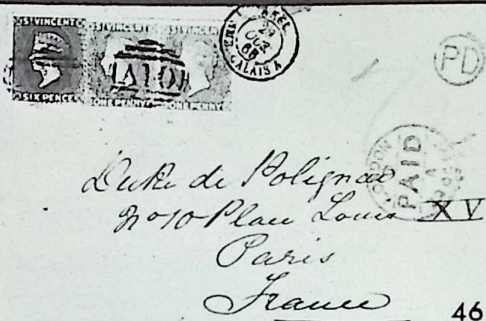 ST VINCENT
SIX PENCE
ST VINCENT
ONE PENNY
ONE PENNY
A10
29
CALAIS A
PD
LONDON
PAID
Duke de Polignac
No 10 Place Louis XV
Paris
France
46